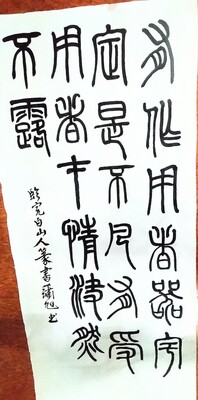 有作用者器宇
定是不凡有受
用者才情決然
不露
臨完白山人篆書旭书